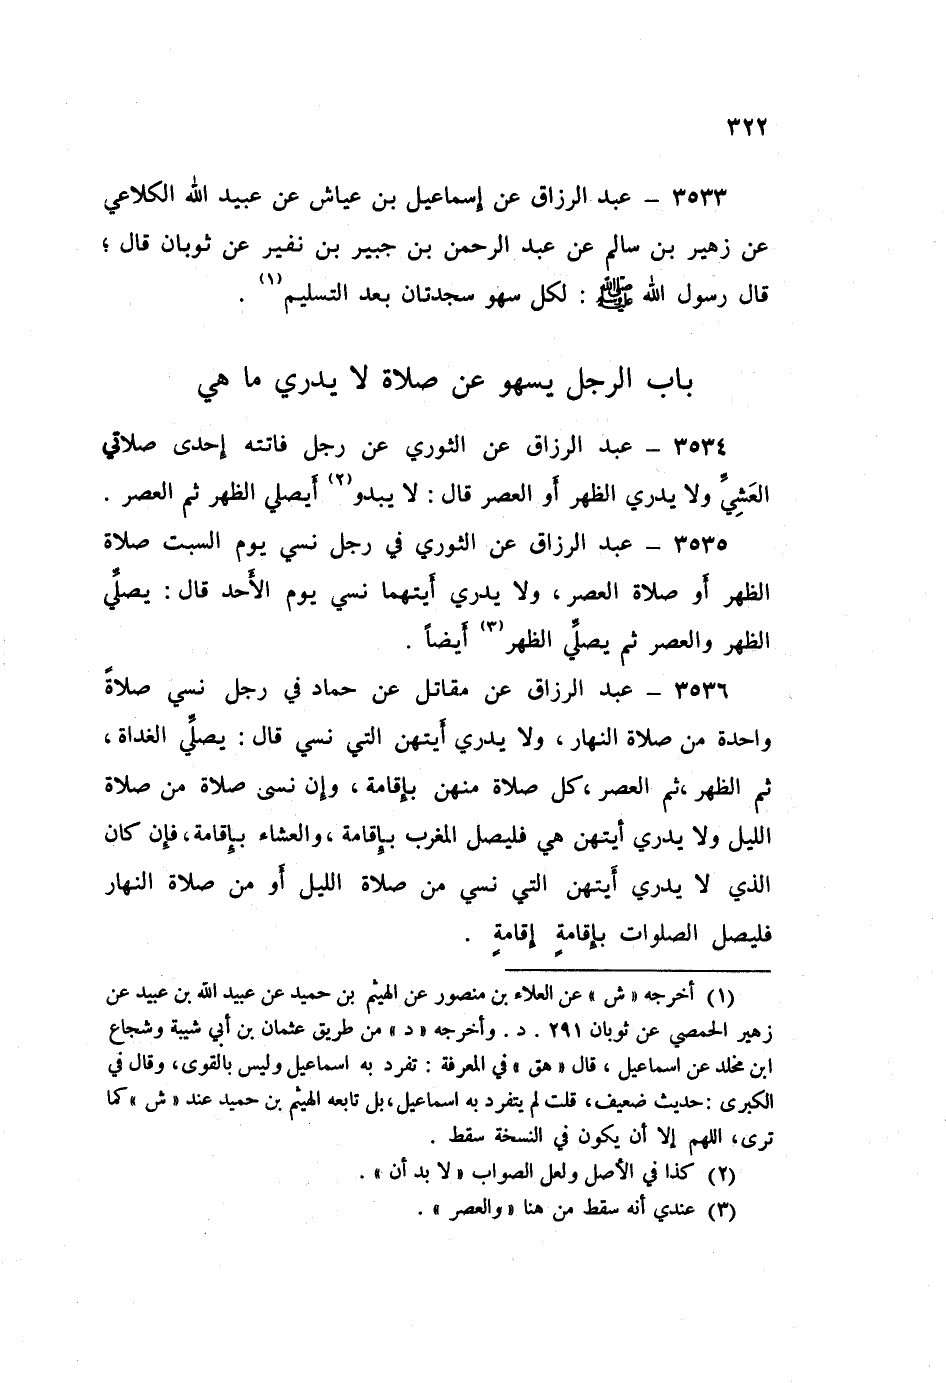 ٣٢٢
٣٥٣٣ - عبد الرزاق عن إسماعيل بن عياش عن عبيد الله الكلاعي
عن زهير بن سالم عن عبد الرحمن بن جبير بن نفير عن ثوبان قال ؛
قال رسول الله ﷺ : لكل سهو سجدتان بعد التسليم(١) .
باب الرجل يسهو عن صلاة لا يدري ما هي
٣٥٣٤ - عبد الرزاق عن الثوري عن رجل فاتته إحدى صلاتي
العَشِيِّ ولا يدري الظهر أَو العصر قال : لا يبدو(٢) أَيصلي الظهر ثم العصر .
٣٥٣٥ - عبد الرزاق عن الثوري في رجل نسي يوم السبت صلاة
الظهر أَو صلاة العصر ، ولا يدري أَيتهما نسي يوم الأَحد قال : يصلِّي
الظهر والعصر ثم يصلِّي الظهر(٣) أَيضاً .
٣٥٣٦ - عبد الرزاق عن مقاتل عن حماد في رجل نسي صلاةً
واحدة من صلاة النهار ، ولا يدري أَيتهن التي نسي قال : يصلِّي الغداة ،
ثم الظهر ،ثم العصر ،كل صلاة منهن بإقامة ، وإن نسى صلاة من صلاة
الليل ولا يدري أيتهن هي فليصل المغرب بإقامة ،والعشاء بإقامة ،فإن كان
الذي لا يدري أَيتهن التي نسي من صلاة الليل أَو من صلاة النهار
فليصل الصلوات بإقامةٍ إقامةٍ .
(١) أخرجه « ش » عن العلاء بن منصور عن الهيثم بن حميد عن عبيد الله بن عبيد عن
زهير الحمصي عن ثوبان ٢٩١ . د . وأخرجه « د » من طريق عثمان بن أبي شيبة وشجاع
ابن مخلد عن اسماعيل ، قال « هق » في المعرفة : تفرد به اسماعيل وليس بالقوى، وقال في
الكبرى :حديث ضعيف، قلت لم يتفرد به اسماعيل،بل تابعه الهيثم بن حميد عند « ش » كما
ترى، اللهم إلا أن يكون في النسخة سقط .
(٢) كذا في الأصل ولعل الصواب « لا بد أن » .
(٣) عندي أنه سقط من هنا « والعصر » .